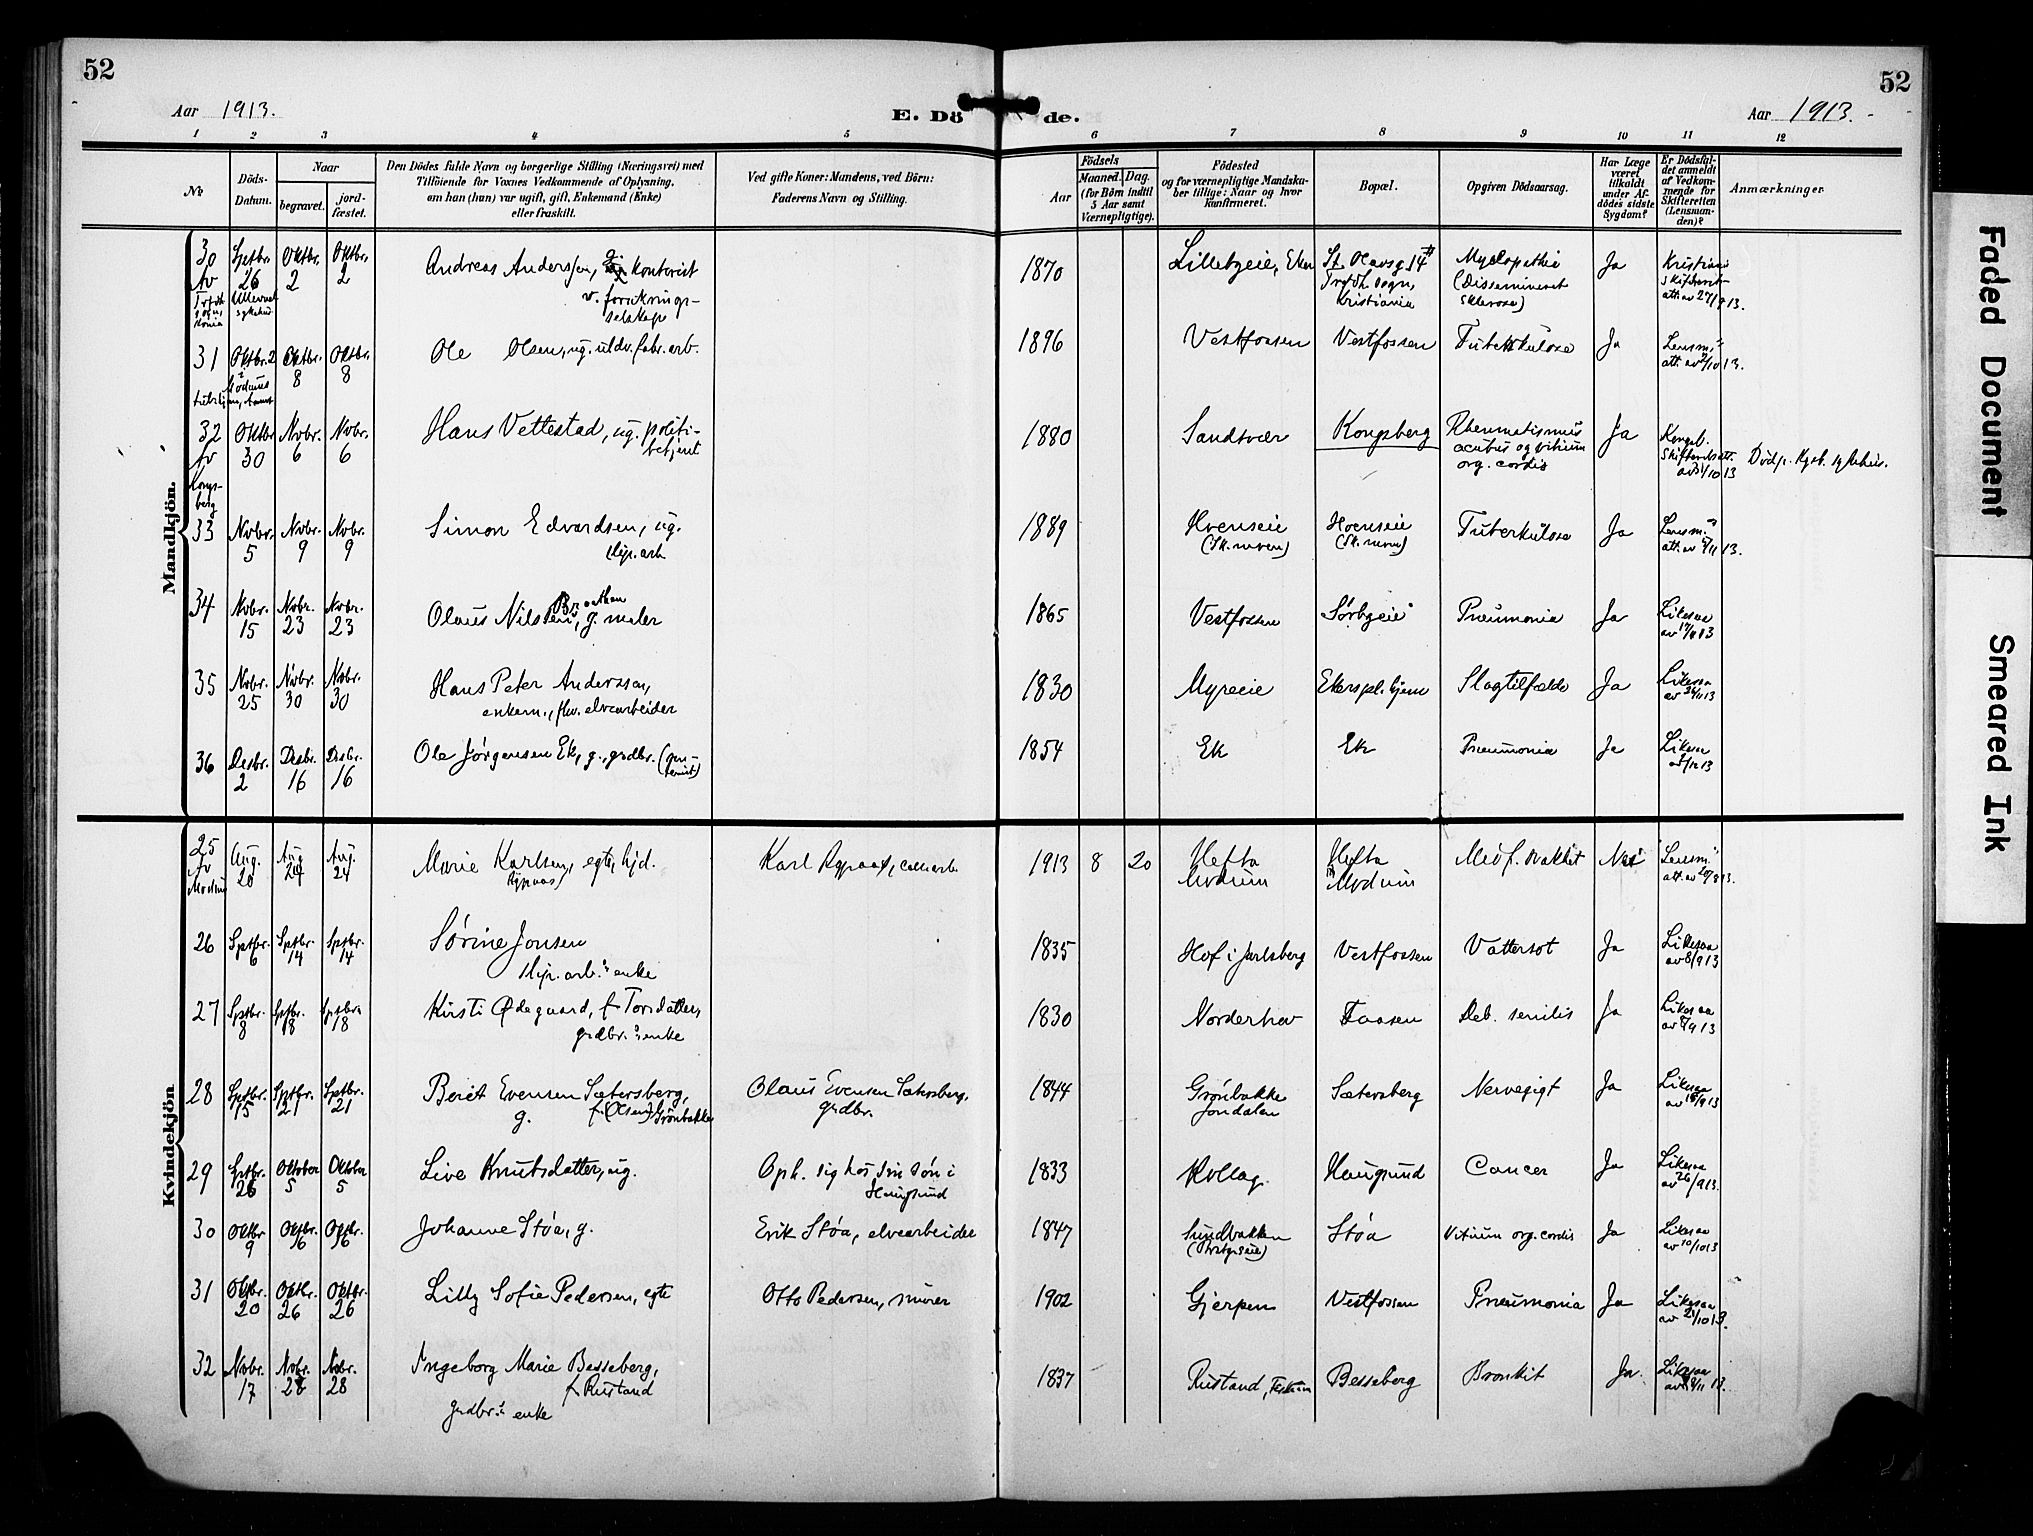 52
52
Aar 1913.
E. Döde.
Aar 1913.
1 2 3 4 5 6 7 8 9 10 11 12
No
Döds-Datum.
Naar
begravet.
jord-fæstet.
Den Dödes fulde Navn og borgerlige Stilling (Næringsvei) med
Tilföiende for Voxnes Vedkommende af Oplysning,
om han (hun) var ugift, gift, Enkemand (Enke)
eller fraskilt.
Ved gifte Koner: Mandens, ved Börn:
Faderens Navn og Stilling.
Födsels
Aar
Maaned. Dag.
(for Börn indtil
5 Aar samt
Værnepligtige).
Födested
og for værnepligtige Mandska-
ber tillige: Naar og hvor
kunfirmeret.
Bopæl.
Opgiven Dödsaarsag.
Har Læge
været
tilkaldt
under Af-
dödes sidste
Sygdom?
Er Dödsfal-
det anmeldt
af Vedkom-
mende for
Skifteretten
(Lensman-
den)?
Anmærkninger
Mandkjön.
30 Sptbr. 26 Oktbr. 2 Oktbr. 2 Andreas Anderssen, kontorist 1870 St. Olavsg. 14 Myelopathie Ja
v. forsikrings-
selskap Kristiania (Dissemineret
sklerose)
31 Oktbr. 2 Oktbr. 8 Oktbr. 8 Ole Olsen, ug. uldv. fabr. arb. 1896 Vestfossen Vestfossen Tuberkulose Ja Lensm.
32 Oktbr 30 Nvbr. 6 Nvbr. 6 Hans Vettestad, ug. politi-
betjent 1880 Sandsvær Kongsberg Rheumatismus
acutus og vitium
org. cordis Ja
av Kongs-
berg
33 Nvbr. 5 Nvbr. 9 Nvbr. 9 Simon Edvardsen, ug. 1889 Hvenseie Hvenseie Tuberkulose Ja Lensm.
34 Nvbr. 15 Nvbr. 23 Nvbr. 23 Olaus Nilsen Braathen, g. maler 1865 Vestfossen Sørbyeie Pneumonia Ja Likesaa
35 Nvbr. 25 Nvbr. 30 Nvbr. 30 Hans Peter Anderssen,
enkem., fhv. elvearbeider 1830 Myreeie Ekerspl. hjem Slagtilfælde Ja Likesaa
36 Desbr. 2 Desbr. 16 Desbr. 16 Ole Jørgensen Ek, g., grdbr. 1854 Ek Ek Pneumonia Ja Likesaa
Kvindekjön
25 av Modum Aug. 20 Aug 24 Aug. 24 Marie Karlsen, egte, hjd. 1913 8 20 Hefta
Modum Hefta
Modum Medf. svakhet Nei Lensm.
26 Sptbr. 6 Sptbr. 14 Sptbr. 14 Sørine Jonsen
enke 1835 Hof i Jarlsberg Vestfossen Vattersot Ja Likesaa
av 8/9 13
27 Sptbr. 8 Sptbr. 18 Sptbr. 18 Kirsti Ødegaard, f. Torsdatter,
grdbr.s enke 1830 Norderhov Faasen Deb. senilis Ja Likesaa
28 Sptbr. 15 Sptbr. 21 Sptbr. 21 Berit Evensen Sætersberg,
g. f. (Olsen) Grönbakke Olaus Evensen Sætersberg,
grdbr. 1844 Grönbakke
Jondalen Sætersberg Nervegigt Ja Likesaa
29 Sptbr. 26 Oktober 5 Oktober 5 Live Knutsdatter, ug. Oph. sig hos sin søn i
Haugsund 1833 Rollag. Haugsund Cancer Ja Likesaa
av 26/9 13.
30 Oktbr 9 Oktbr. 16 Oktbr. 16 Johanne Støa, g. Erik Støa, elvearbeider 1847 Sundbakken Støa Vitium org. cordis Ja Likesaa
av 10/10 13
31 Oktbr. 20 Oktbr. 26 Oktbr. 26 Lilly Sofie Pedersen, egte Otto Pedersen, murer 1902 Gjerpen Vestfossen Pneumonia Ja Likesaa
av 21/10 13.
32 Nvbr. 17 Nvbr. 28 Nvbr. 28 Ingeborg Marie Besseberg,
f. Rustand
grdbr.s enke 1837 Rustand, Besseberg Bronkit Ja. Likesaa
Faded Document
Smeared Ink